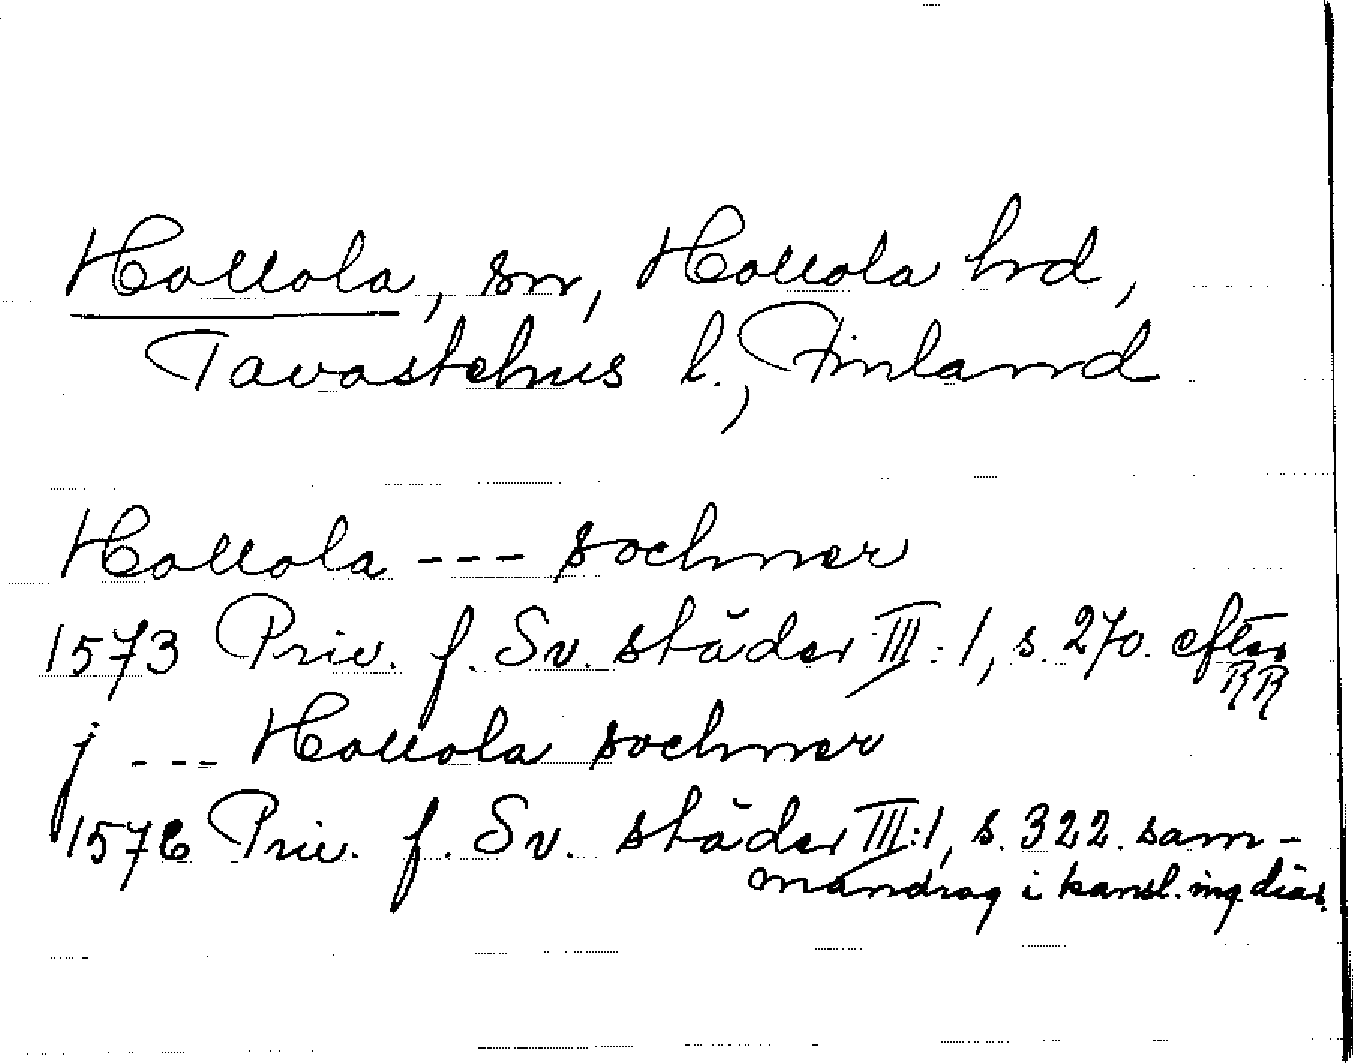 Hollola, sn, Hollola hrd,
Tavastehus l., Finland
Hollola --- sochner
1573 Priv. f. Sv. städer III:1, s. 270. efter
RR
j --- Hollola sochner
1576 Priv. f. Sv. städer III:1, s. 322. sam-
mandrag i kansl. ing. diar.